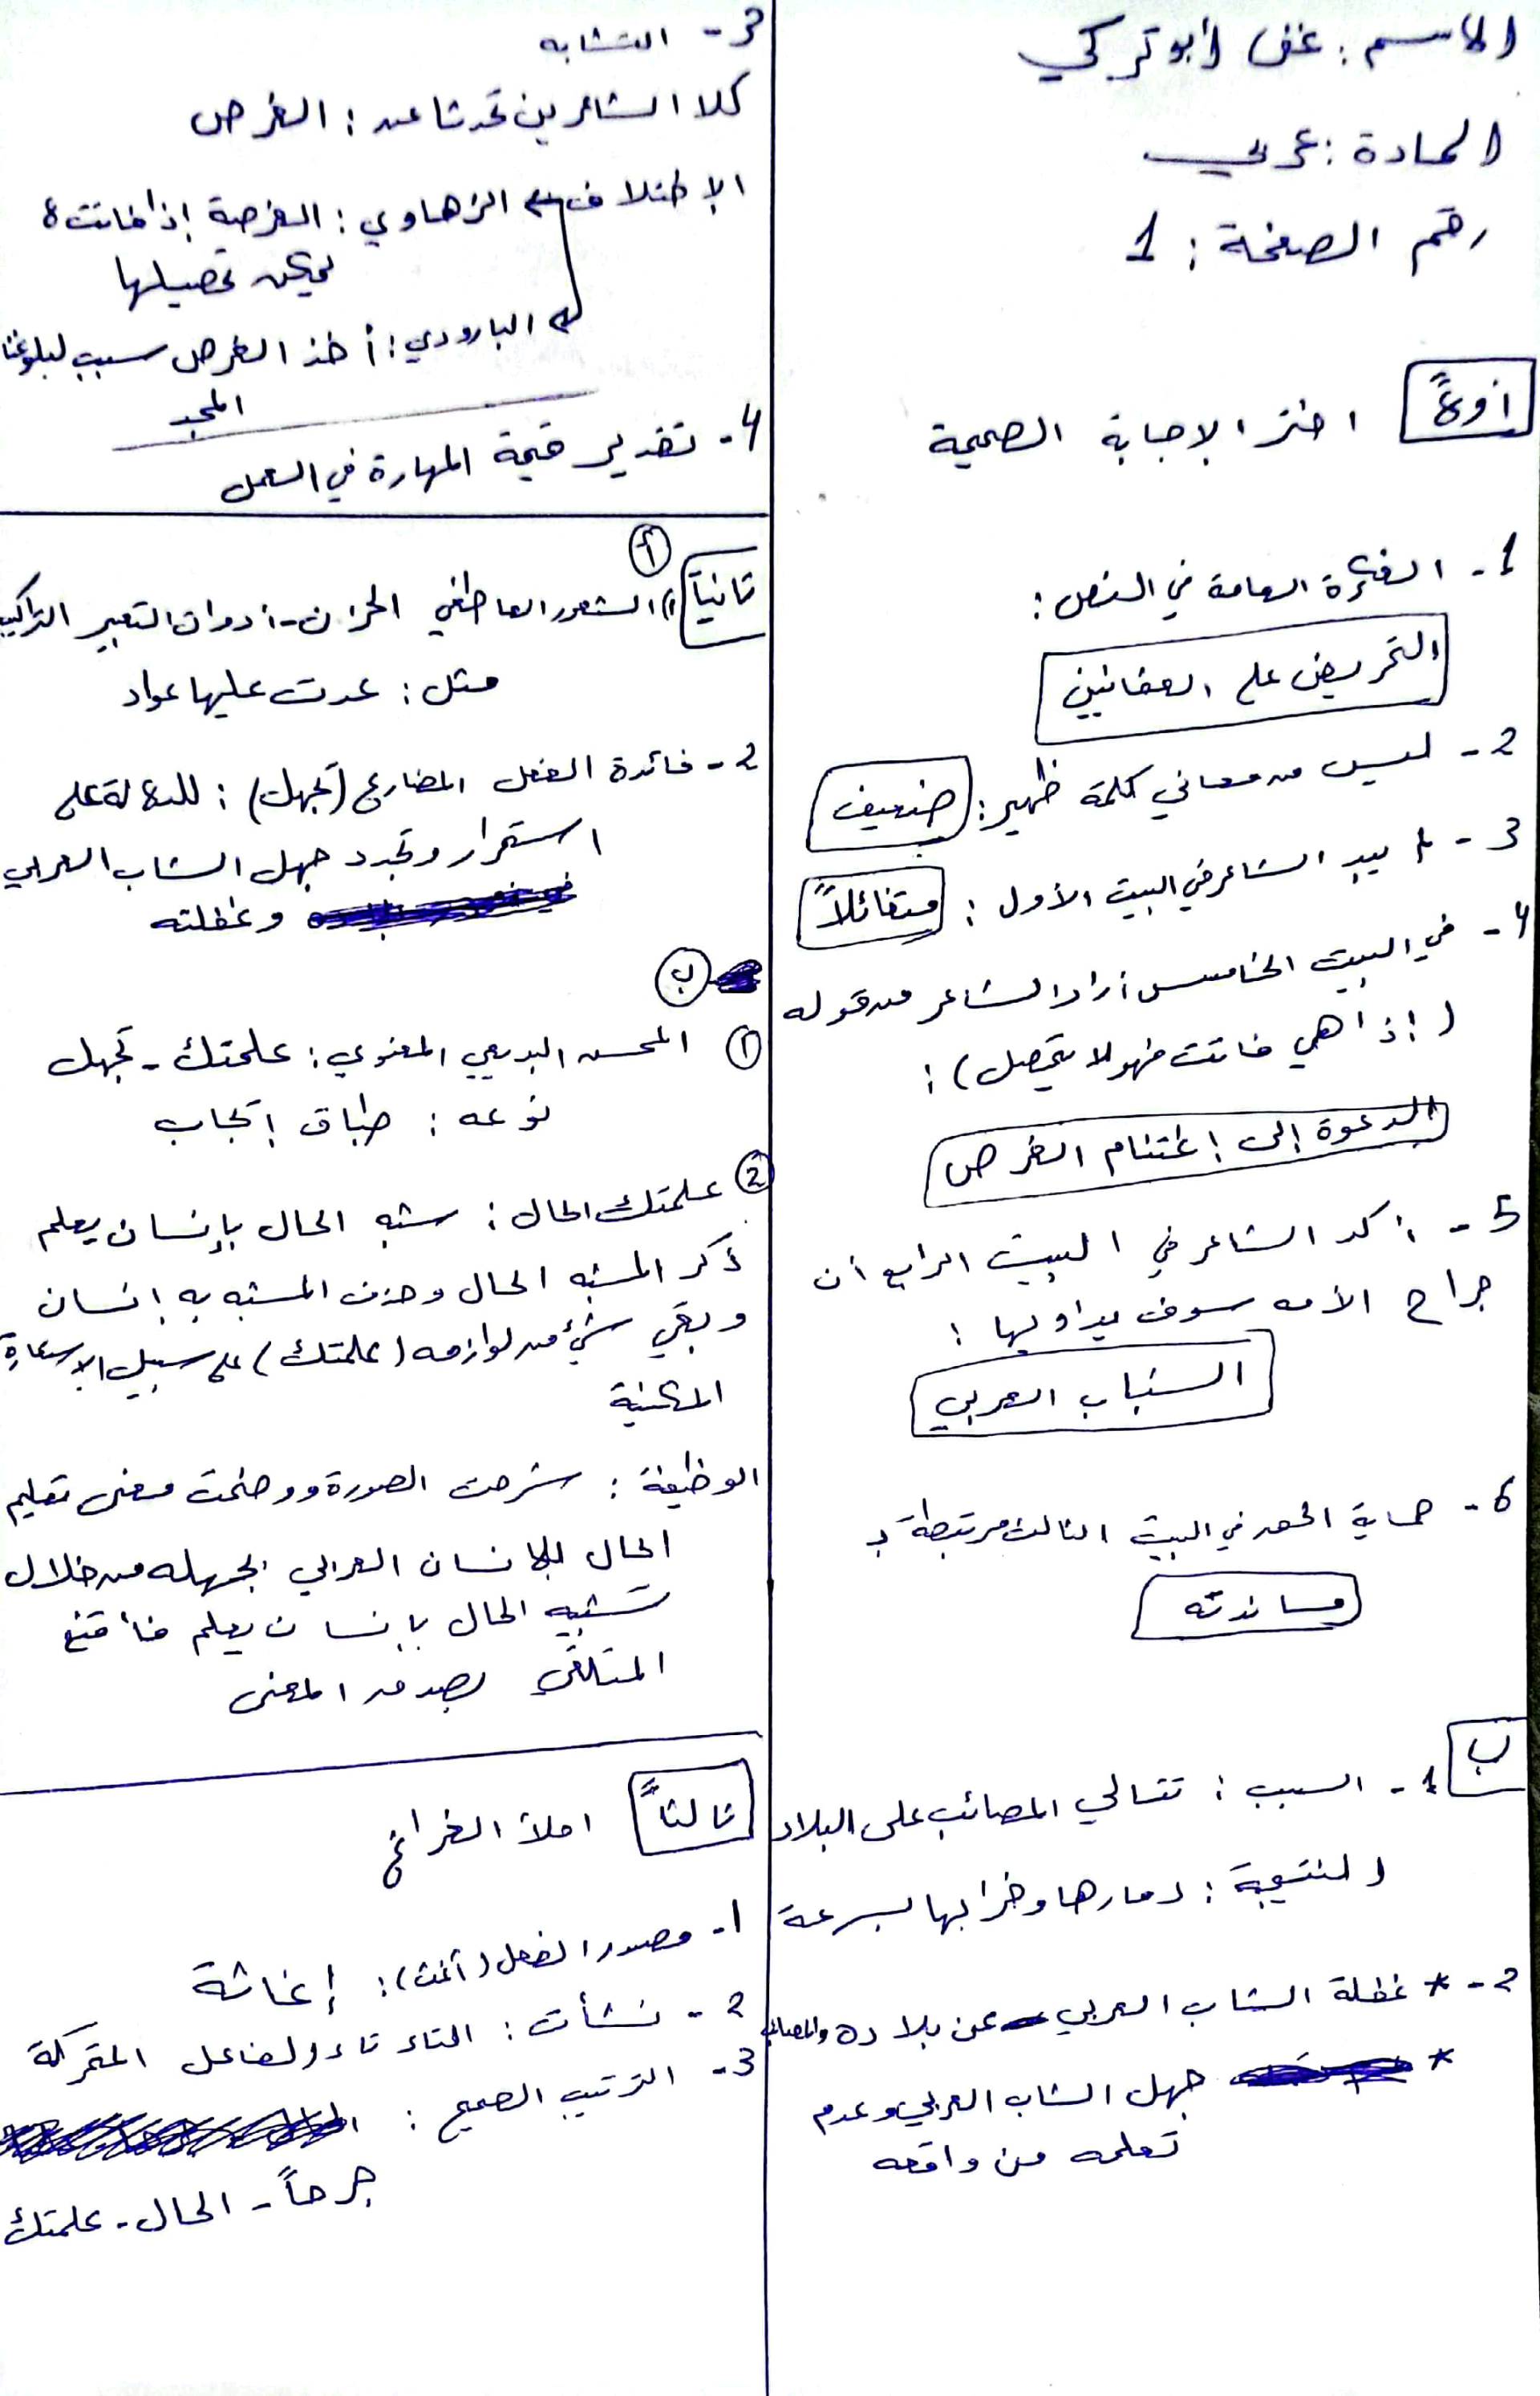 الاسم: غنى أبو تركي
المادة: عربي
رقم الصفحة: 1
أولاً اختر الإجابة الصحيحة
1- الفكرة العامة في النص:
التحريض على العثمانيين
2- ليس من معاني كلمة ظهير: ضعيف
3- بيد الشاعر في البيت الأول: متفائلاً
4- في البيت الخامس أراد الشاعر من قوله
(إذا هي فاتت فهو لا يتحصل):
الدعوة إلى اغتنام الفرص
5- أكد الشاعر في البيت الرابع أن
جراح الأمة سوف يداويها:
الشباب العربي
6- حماية الحق في البيت الثالث مرتبطة بـ
مساندته
ب
1- السبب: تتالي المصائب على البلاد
النتيجة: دمارها وخرابها بسرعة
2- * غفلة الشاب العربي عن بلاده والمصائب
* جهل الشاب العربي وعدم
تعلمه من واقعه
3- التشابه
كلا الشاعرين تحدثا عن: الفرص
الاختلاف الزهاوي: الفرصة إذا فاتت لا
يمكن تحصيلها
البارودي: أخذ الفرص سبب لبلوغنا
المجد
4- تقدير قيمة المهارة في العمل
أ
ثانياً 1) الشعور العاطفي الحزن - أدوات التعبير التراكيب
مثل: عدت عليها عواد
2- فائدة الفعل المضارع (تجهل): للدلالة على
استمرار وتجدد جهل الشاب العربي
وغفلته
ب
1 المحسن البديعي المعنوي: علمتك - تجهل
نوعه: طباق إيجاب
2 علمتك الحال: شبه الحال بإنسان يعلم
ذكر المشبه الحال وحذف المشبه به إنسان
وبقي شيء من لوازمه (علمتك) على سبيل الاستعارة
المكنية
الوظيفة: شرحت الصورة ووضحت معنى تعليم
الحال للإنسان العربي لجهله من خلال
تشبيه الحال بإنسان يعلم فأقنع
المتلقي بصدق المعنى
ثالثاً املأ الفراغ
1- مصدر الفعل (أغث): إغاثة
2- نشأت: التاء تاء الفاعل المتحركة
3- الترتيب الصحيح:
جرحاً - الحال - علمتك